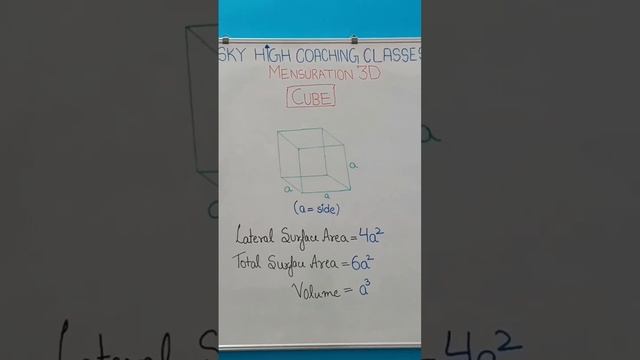 SKY HIGH COACHING CLASSES
MENSURATION 3D
CUBE
a
a
a
(a = side)
Lateral Surface Area = 4a²
Total Surface Area = 6a²
Volume = a³